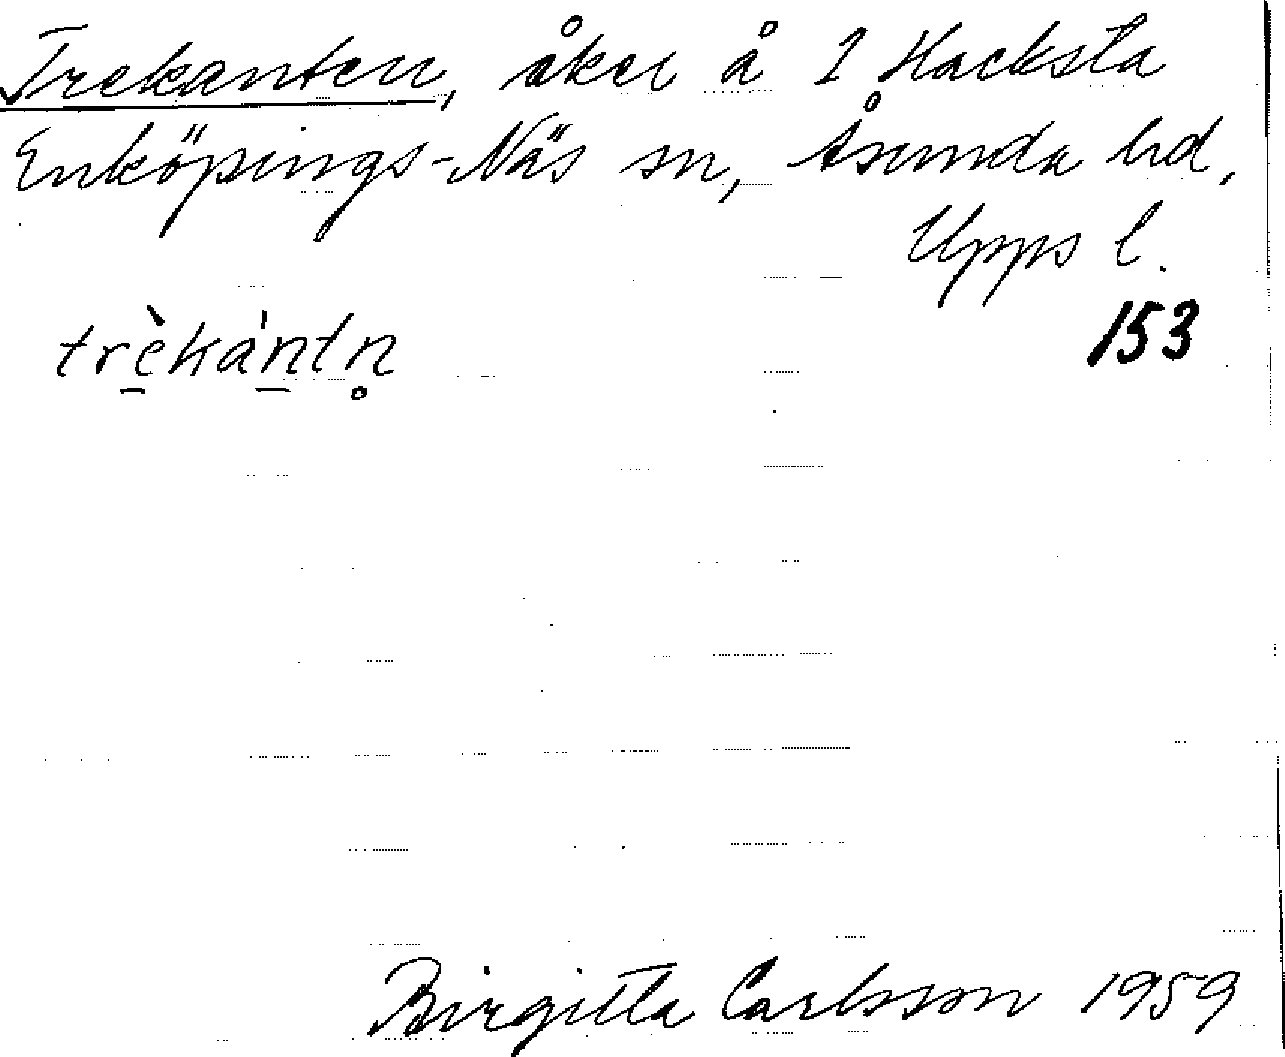 Trekanten, åker å 1 Hacksta
Enköpings-Näs sn, Åsunda hd,
Upps l.
153
trè̱ka̍ṉtn̥
Birgitta Carlsson 1959